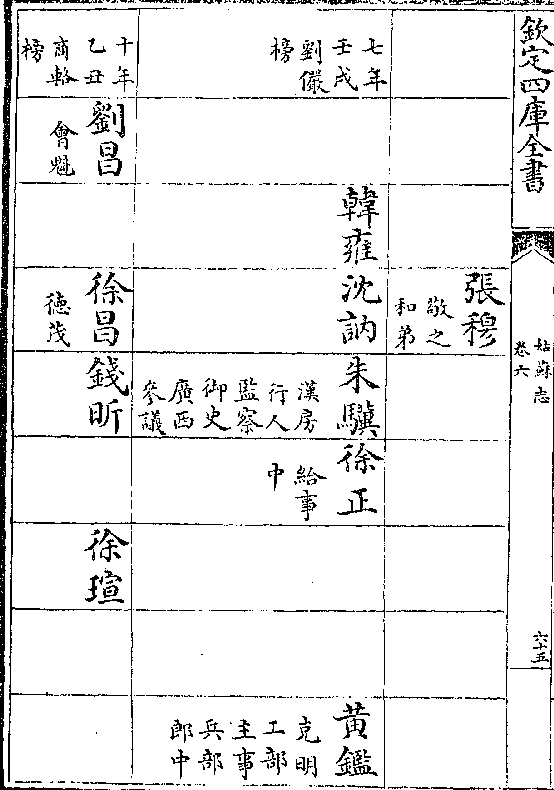 欽定四庫全書
姑蘇志
卷六
六十五
張穆
敬之
和弟
七年
壬戌
劉儼
榜
韓雍
沈訥
朱驥
漢房
行人
監察
御史
廣西
參議
徐正
給事
中
黃鑑
克明
工部
主事
兵部
郎中
十年
乙丑
商輅
榜
劉昌
會魁
徐昌
德茂
錢昕
徐瑄